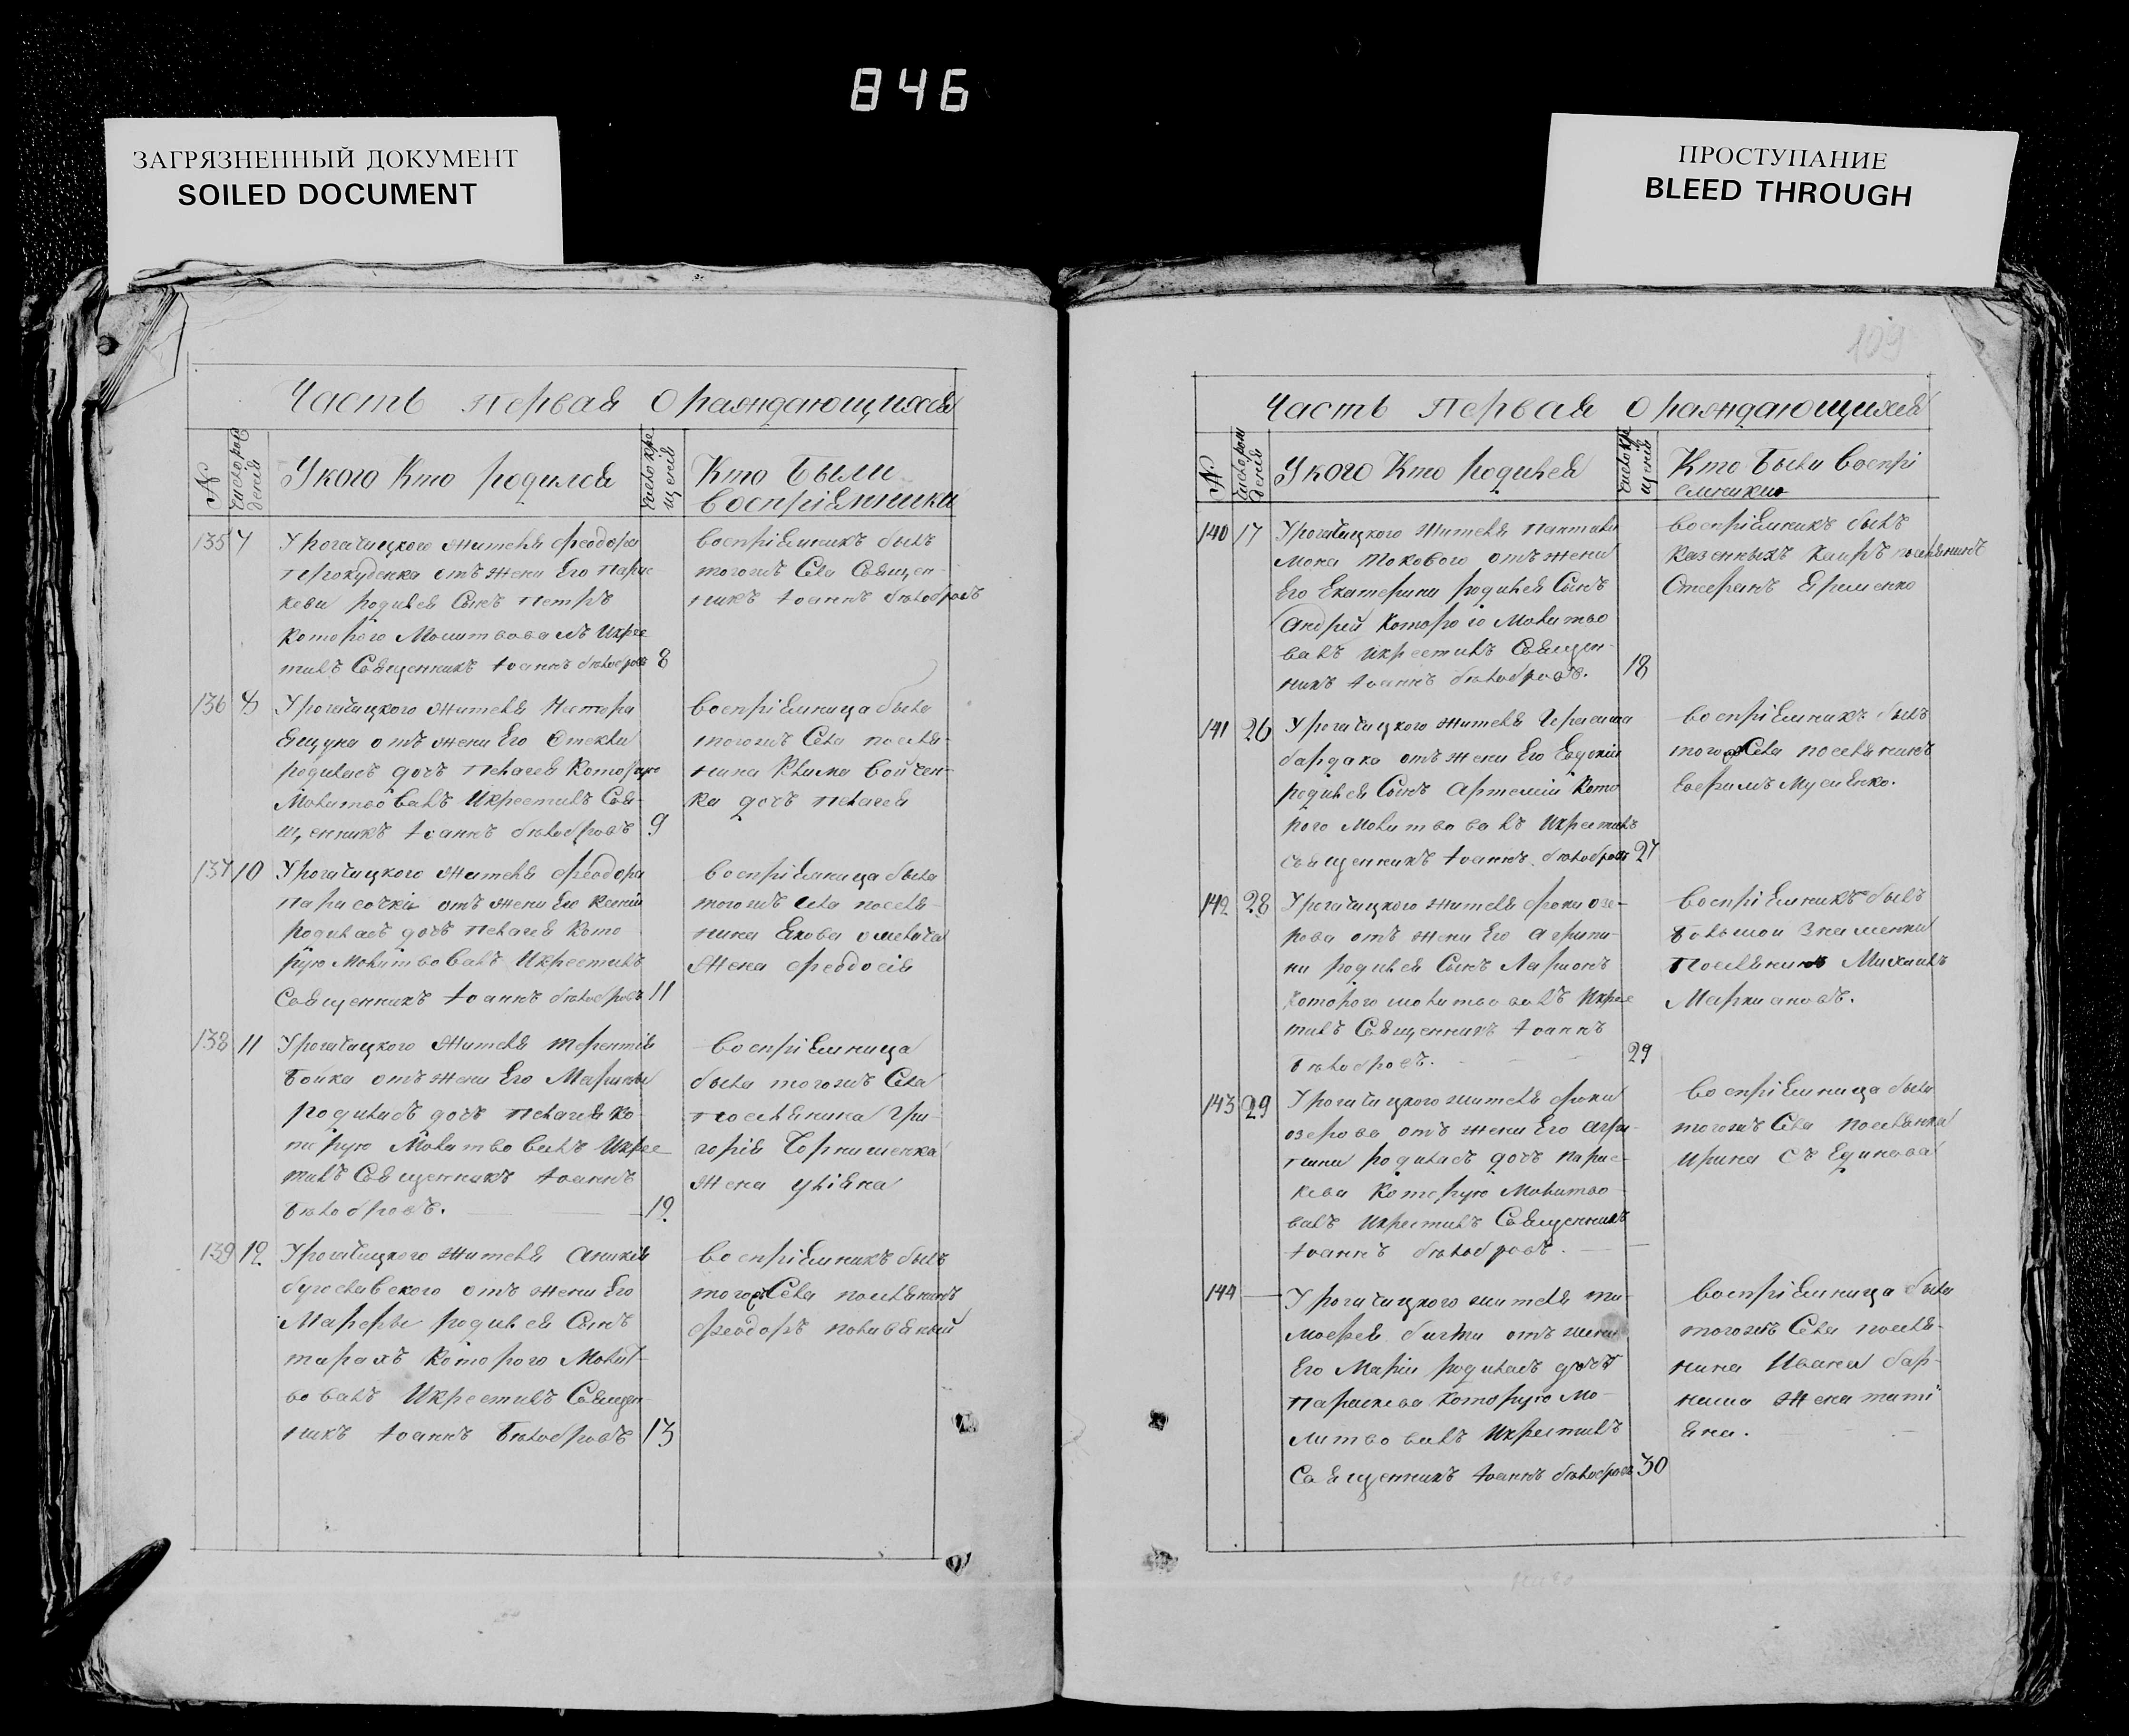 846
ЗАГРЯЗНЕННЫЙ ДОКУМЕНТ
SOILED DOCUMENT
ПРОСТУПАНИЕ
BLEED THROUGH
Часть первая о раждающихся
№
Число рож
денія
У кого Кто родился
Число кре
щенія
Кто Были
воспріемники
135 7 У рогачицкого жителя Феодора
Прокуденка отъ жены Его Парас
кевы родился Сынъ Петръ
Которого Молитвовалъ Икрес
тилъ Священникъ Іоаннъ Бѣлобровъ 8
воспріемникъ былъ
тогожъ Села Священ
никъ Іоаннъ бѣлобровъ
136 8 У рогачицкого жителя Нестора
Ящука отъ жены Его Стеклы
родилась дочъ Пелагея Которую
Молитвовалъ Икрестилъ Свя
щенникъ Іоаннъ бѣлобровъ 9
воспріемница была
тогожъ Села поселя-
нина Клима Бойчен-
ка дочъ Пелагея
137 10 У рогачицкого жителя Феодора
отъ жены Его Ксеніи
родилась дочъ Пелагея Кото
рую Молитвовалъ Икрестилъ
Священникъ Іоаннъ бѣлобровъ 11
воспріемница была
тогожъ Села поселя-
нина Якова
Жена Феодосія
138 11 У рогачицкого Жителя Терентія
Бойка отъ жены Его Марины
родилась дочъ Пелагея Ко
торую Молитвовалъ Икрес
тилъ Священникъ Іоаннъ
Бѣлобровъ. 12
воспріемница
была тогожъ Села
Поселянина Гри-
горія Чорнишенка
Жена Уліяна
139 12 У рогачицкого жителя Аникія
бугославского отъ жены Его
Марфы родился Сынъ
Тарахъ Которого Молит
вовалъ Икрестилъ Священ
никъ Іоаннъ Бѣлобровъ 13
воспріемникъ былъ
тогожъ Села поселянинъ
Феодоръ
109
Часть первая о раждающихся
№
Число рож
денія
У кого Кто родился
Число кре
щенія
Кто Были воспрі
емники
140 17 У рогачицкого Жителя Пантале
мона Токового отъ жены
Его Екатерины родился Сынъ
Андрей Которого Молитво
валъ Икрестилъ Священ-
никъ Іоаннъ бѣлобровъ. 18
воспріемникъ былъ
казенныхъ Каиръ поселянинъ
Стефанъ Ерименко
141 26 У рогачицкого жителя Герасима
бардака отъ жены Его Евдокіи
родился Сынъ Артемій Кото
рого Молитвовалъ Икрестилъ
священникъ Іоаннъ бѣлобровъ 27
воспріемникъ былъ
тогожъ Села поселянинъ
Ефимъ Мусіенко.
142 28 У рогачицкого жителя Фоки Озе-
рова отъ жены Его Агрипи-
ны родился Сынъ Ларіонъ
Которого молитвовалъ Икрес
тилъ Священникъ Іоаннъ
Бѣлобровъ. 29
воспріемникъ былъ
Большой Знаменки
Поселянинъ Михаилъ
Маркиановъ.
143 29 У рогачицкого жителя Фоки
Озерова отъ жены Его Агри-
пины родилась дочъ Парас-
кева Которую Молитво
валъ Икрестилъ Священникъ
Іоаннъ бѣлобровъ.
воспріемница была
тогожъ Села поселянка
Ирина
144 У рогачицкого жителя Ти-
мофея отъ жены
Его Маріи родилась дочъ
Параскева Которую Мо-
литвовалъ Икрестилъ
Священникъ Іоаннъ бѣлобровъ 30
воспріемница была
тогожъ Села поселя-
нина Ивана
Жена Таті
яна.